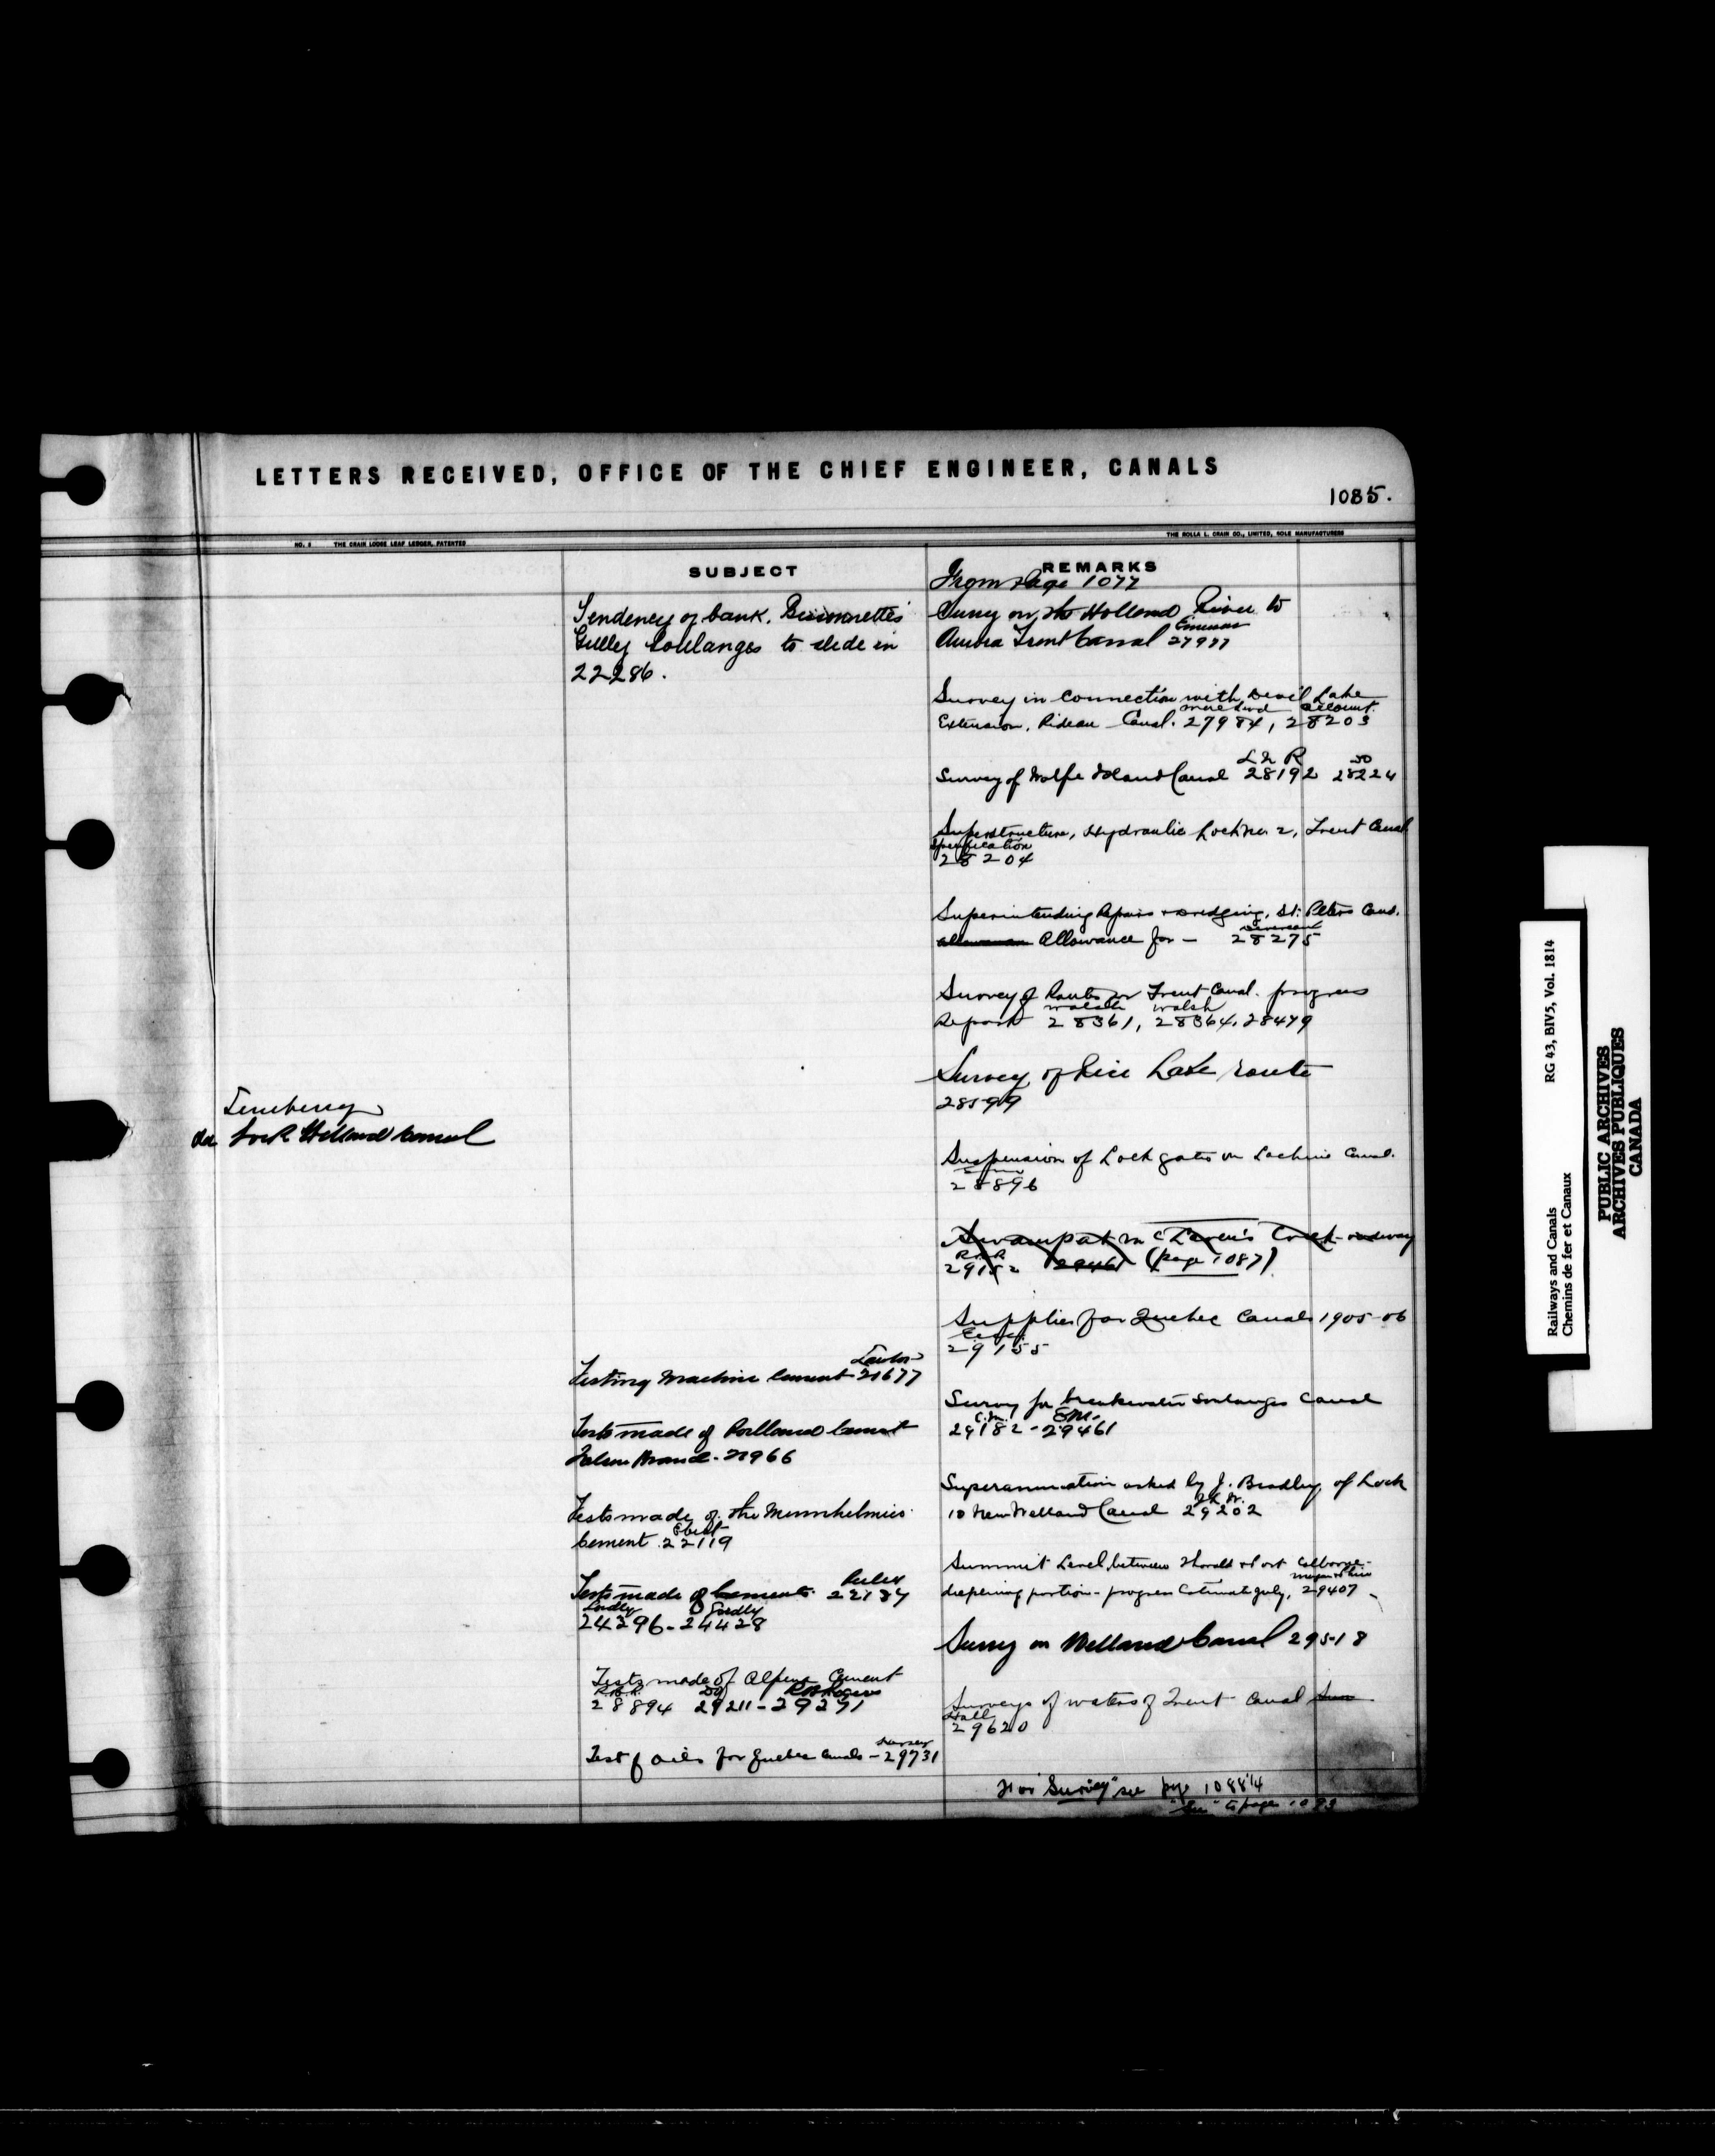 LETTERS RECEIVED, OFFICE OF THE CHIEF ENGINEER, CANALS
1085.
NO. 8 THE CRAIN LOOSE LEAF LEDGER, PATENTED
THE ROLLA L. CRAIN CO., LIMITED, SOLE MANUFACTURERS
SUBJECT
REMARKS
Lock Welland Canal
Tendency of bank, Bissonnette's
Gulley Soulanges to slide in
22286.
Testing Machine Cement 21677
Tests made of Portland Cement
Brand - 21966
Tests made of the
Cement 22119
Tests made of Cements 22137
24396 - 24428
Tests made of Alpena Cement
R.B.R. RB Rogers
28894 29211 - 29291
Test of oils for Quebec Canals - 29731
From Page 1077
Survey on the Holland River to
Aurora Trent Canal 27977
Survey in connection with Devil Lake
account.
Extension, Rideau Canal. 27984, 28203
Survey of Wolfe Island Canal 28192 28224
Superstructure, Hydraulic Lock No 2, Trent Canal
Specification
28204
Superintending Repairs + dredging, St. Peters Canal.
Allowance for - 28275
Survey of Route for Trent Canal. progress
Walsh Walsh
Report 28361, 28364, 28479
Survey of Rice Lake route
28599
Suspension of Lock gates on Lachine Canal.
28896
(page 1087)
Supplies for Quebec Canals 1905-06
29155
Survey for breakwater Soulanges Canal
29182 - 29461
Superannuation asked by J. Bradley, of Lock
10 New Welland Canal 29202
Summit Level, between Thorold & Port Colborne -
deepening portion - progress Estimate July, 29407
Survey on Welland Canal 29518
Surveys of waters of Trent Canal
Hall
29620
For "Survey" see page 1088 1/4
to page
Railways and Canals RG 43, BIV5, Vol. 1814
Chemins de fer et Canaux
PUBLIC ARCHIVES
ARCHIVES PUBLIQUES
CANADA